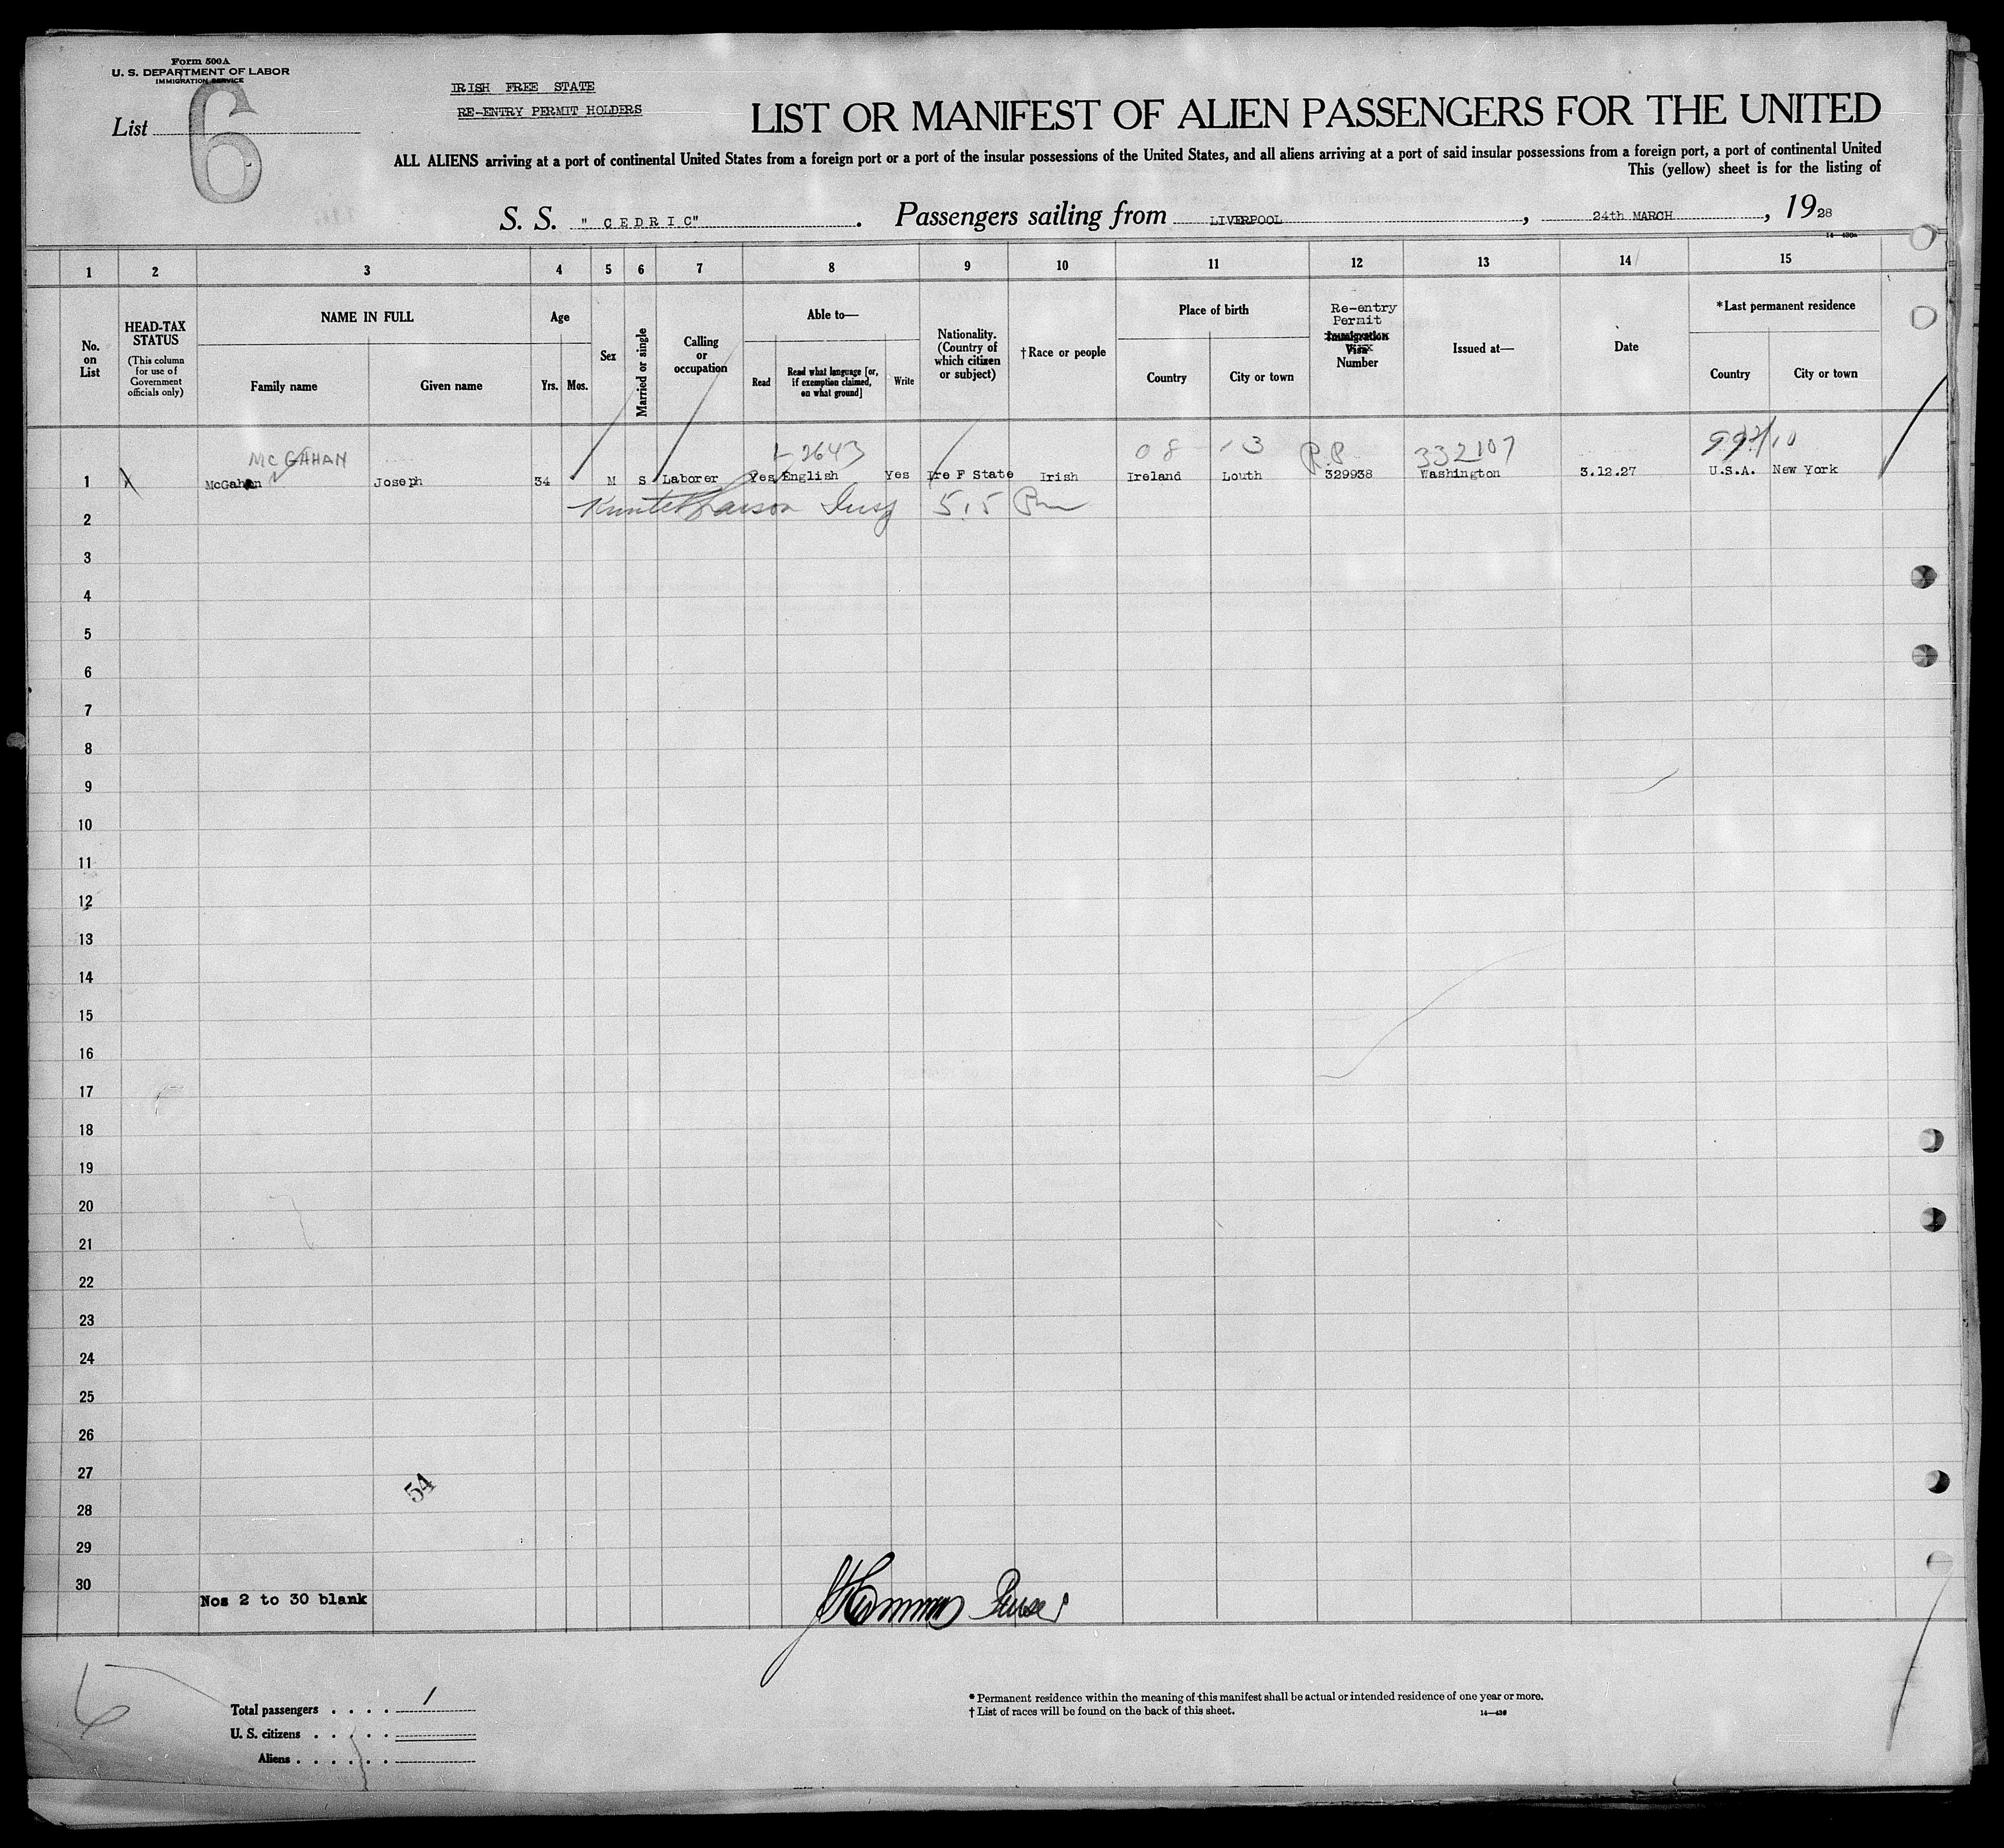 Form 500A
U. S. DEPARTMENT OF LABOR
IMMIGRATION SERVICE
List 6
IRISH FREE STATE
RE-ENTRY PERMIT HOLDERS
LIST OR MANIFEST OF ALIEN PASSENGERS FOR THE UNITED
ALL ALIENS arriving at a port of continental United States from a foreign port or a port of the insular possessions of the United States, and all aliens arriving at a port of said insular possessions from a foreign port, a port of continental United
This (yellow) sheet is for the listing of
S. S. "CEDRIC". Passengers sailing from LIVERPOOL, 24th MARCH, 1928
1 2 3 4 5 6 7 8 9 10 11 12 13 14 15
No. on List
HEAD-TAX STATUS
(This column for use of Government officials only)
NAME IN FULL
Family name Given name
Age
Yrs. Mos.
Sex
Married or single
Calling or occupation
Able to—
Read
Read what language [or, if exemption claimed, on what ground]
Write
Nationality. (Country of which citizen or subject)
† Race or people
Place of birth
Country City or town
Re-entry Permit
Immigration Visa
Number
Issued at—
Date
*Last permanent residence
Country City or town
MC GAHAN 1-2643 08 - 13 P.P. 332107
1 X McGahan Joseph 34 M S Laborer Yes English Yes Ire F State Irish Ireland Louth 329938 Washington 3.12.27 U.S.A. New York
2 Insp 515
3
4
5
6
7
8
9
10
11
12
13
14
15
16
17
18
19
20
21
22
23
24
25
26
27
54
28
29
30
Nos 2 to 30 blank
Purser
6
Total passengers . . . . 1
U. S. citizens . . . . .
Aliens . . . . . .
* Permanent residence within the meaning of this manifest shall be actual or intended residence of one year or more.
† List of races will be found on the back of this sheet.